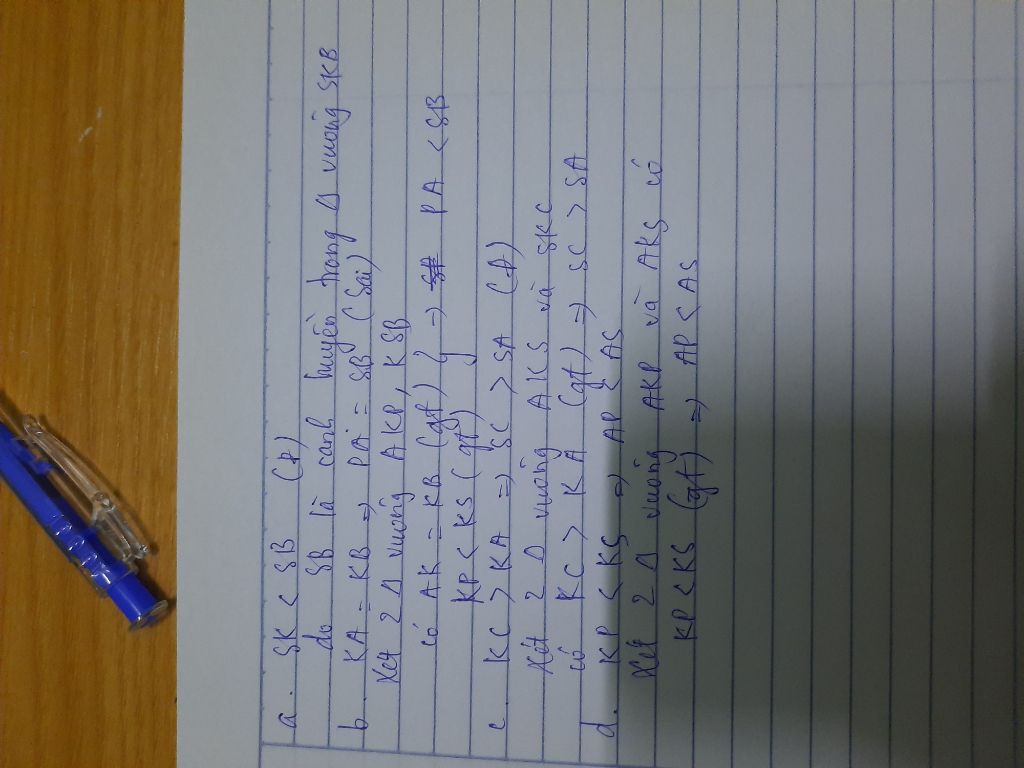 a. SK < SB (đ)
do SB là cạnh huyền trong Δ vuông SKB
b. KA = KB => PA = SB (Sai)
Xét 2 Δ vuông AKP, KSB
có AK = KB (gt) } => PA < SB
KP < KS (gt)
c. KC > KA => SC > SA (đ)
Xét 2 Δ vuông AKS và SKC
có KC > KA (gt) => SC > SA
d. KP < KS => AP < AS
Xét 2 Δ vuông AKP và AKS có
KP < KS (gt) => AP < AS